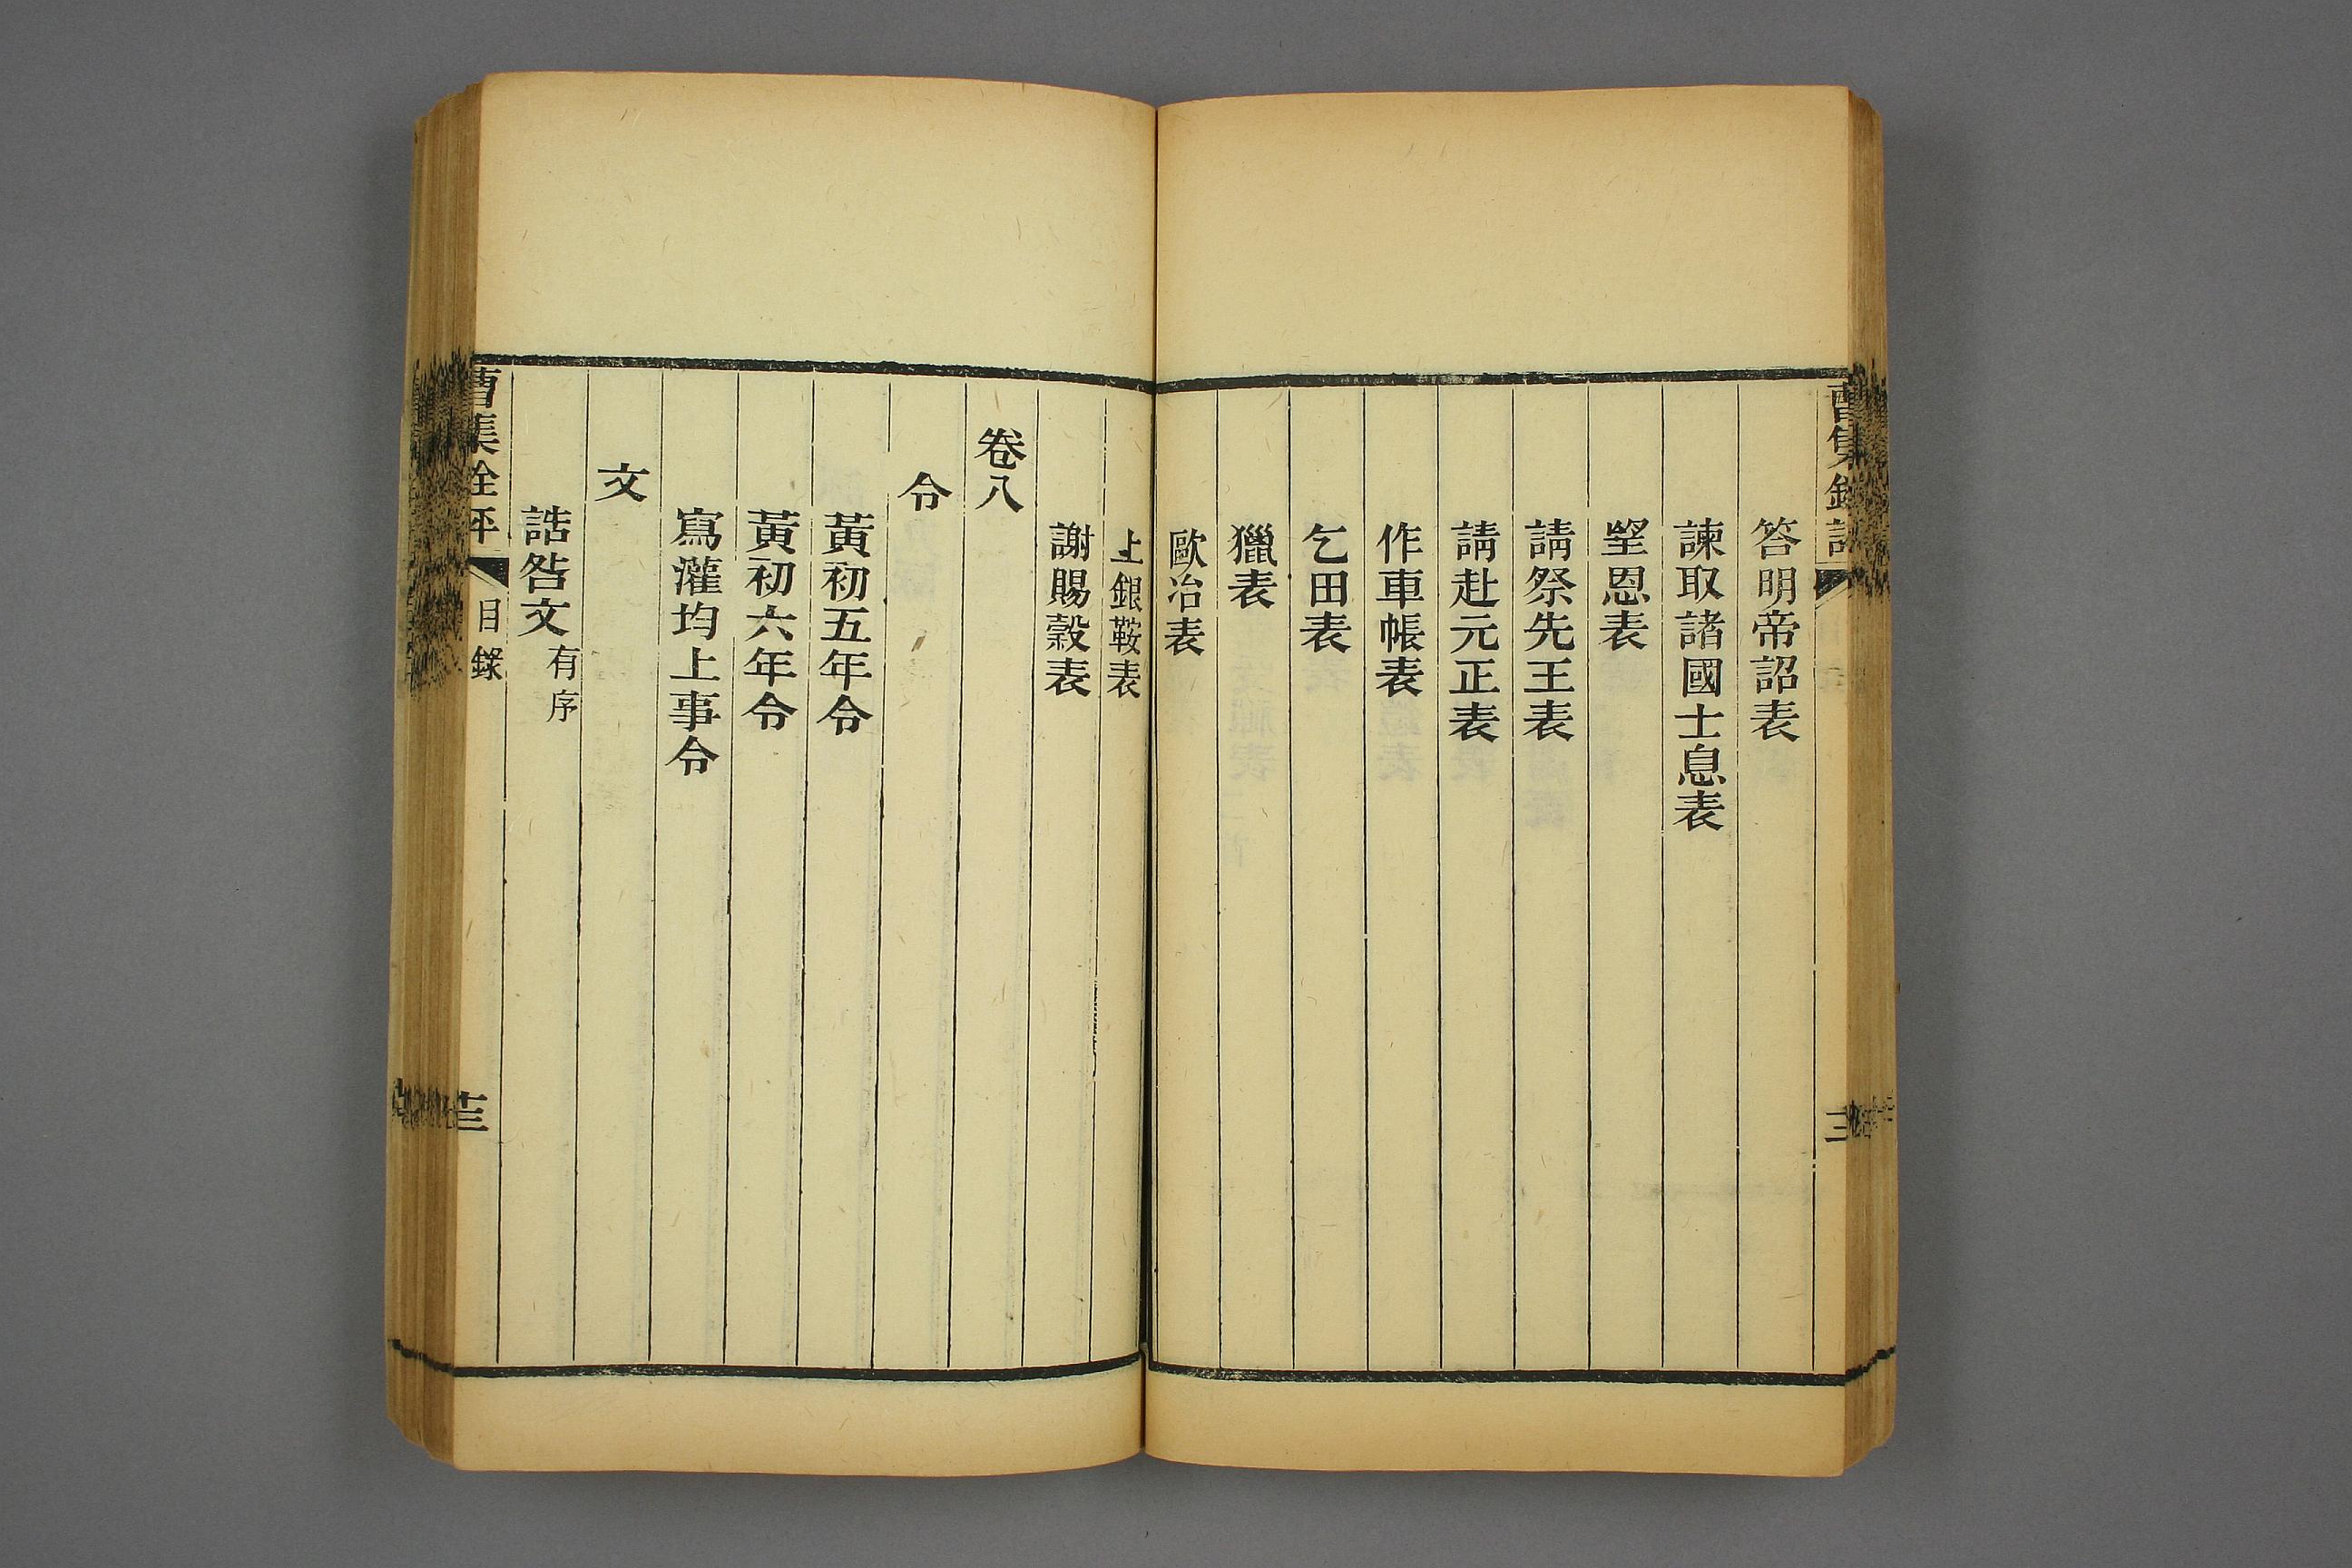 答明帝詔表
諫取諸國士息表
朢恩表
請祭先王表
請赴元正表
作車帳表
乞田表
獵表
歐冶表
上銀鞍表
謝賜穀表
卷八
令
黃初五年令
黃初六年令
寫灌均上事令
文
誥咎文有序
曹集銓評 目錄